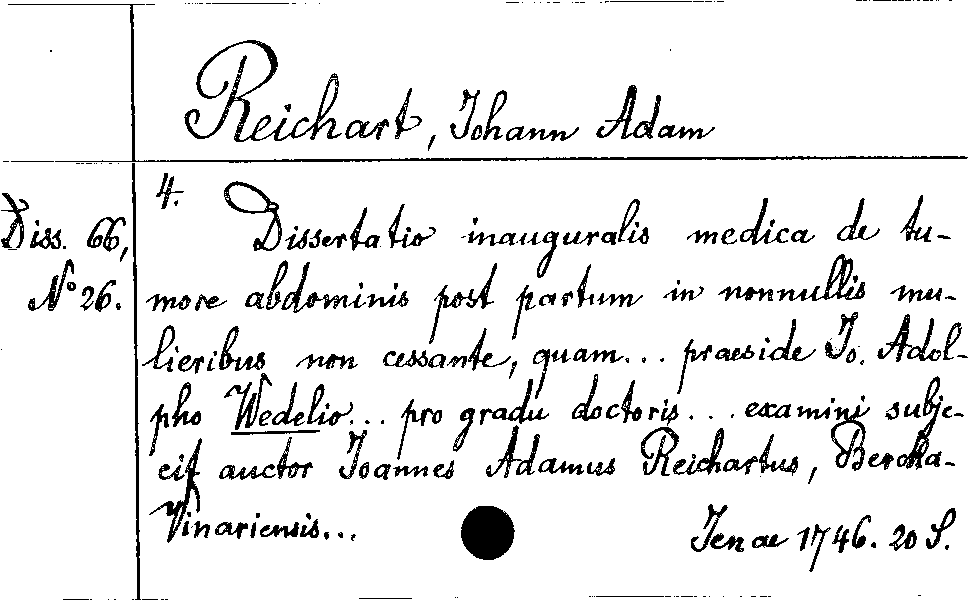 Reichart, Johann Adam
4.
Diss. 66,
No 26.
Dissertatio inauguralis medica de tu-
more abdominis post partum in nonnullis mu-
lieribus non cessante, quam... praeside Jo. Adol-
pho Wedelio... pro gradu doctoris... examini subje-
cit auctor Joannes Adamus Reichartus, Bercka-
Vinariensis...
Jenae 1746. 20 S.